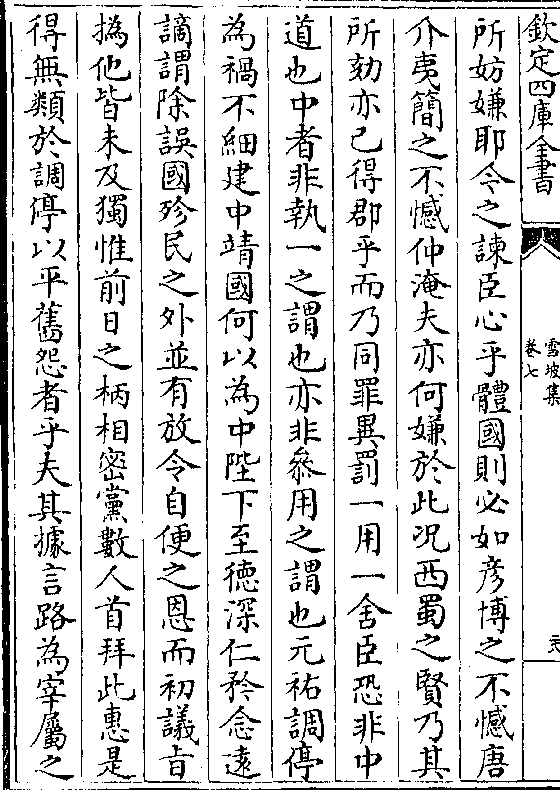 欽定四庫全書
雪坡集
卷七
所妨嫌耶令之諫臣心乎體國則必如彦博之不憾唐
介夷簡之不憾仲淹夫亦何嫌於此况西蜀之賢乃其
所劾亦已得郡乎而乃同罪異罰一用一舍臣恐非中
道也中者非執一之謂也亦非叅用之謂也元祐調停
為禍不細建中靖國何以為中陛下至徳深仁矜念逺
謫謂除誤國殄民之外並有放令自便之恩而初議㫖
撝他皆未及獨惟前日之柄相密黨數人首拜此惠是
得無類於調停以平舊怨者乎夫其據言路為宰屬之